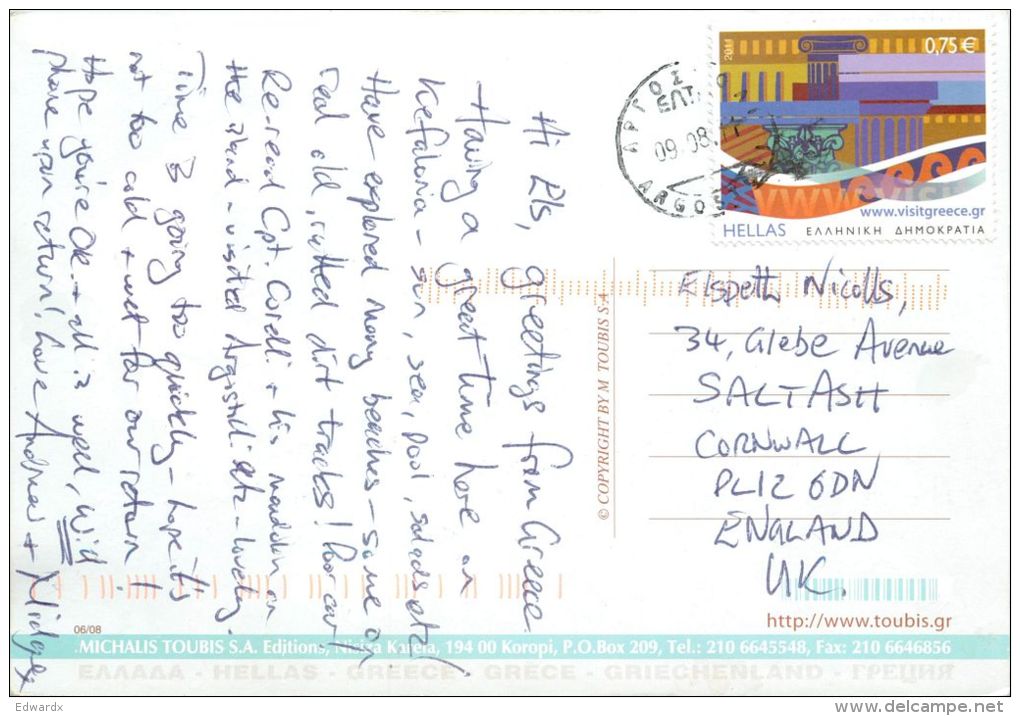 Hi Els, greetings from Greece.
Having a great time here on
Kefalonia - sun, sea, pool, salads etc!
Have explored many beaches - some on
real old, rutted dirt tracks! Poor car!
Re-read Cpt. Corelli + his mandolin on
the island - visited Argostoli etc - lovely.
Time is going too quickly - hope it's
not too cold + wet for our return!
Hope you're OK + all is well, will
phone upon return! love Andrew + Midge x
2011
0,75 €
www.visitgreece.gr
HELLAS ΕΛΛΗΝΙΚΗ ΔΗΜΟΚΡΑΤΙΑ
ΑΡΓΟΣ
ΕΛΤΑ
09.08.11
ARGOS
Elspeth Nicolls,
34, Glebe Avenue
SALTASH
CORNWALL
PL12 6DN
ENGLAND
UK.
© COPYRIGHT BY M TOUBIS S.A
http://www.toubis.gr
06/08
MICHALIS TOUBIS S.A. Editions, Nisiza Karela, 194 00 Koropi, P.O.Box 209, Tel.: 210 6645548, Fax: 210 6646856
ΕΛΛΑΔΑ - HELLAS - GREECE - GRÈCE - GRIECHENLAND - ГРЕЦИЯ
Edwardx
www.delcampe.net